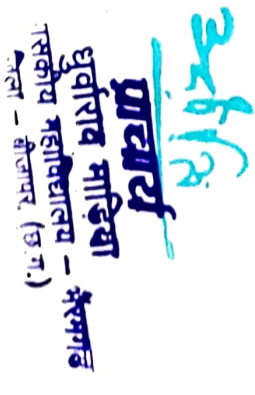 प्राचार्य
धुर्वाराव माड़िया
शासकीय महाविद्यालय - भैरमगढ़
जिला - बीजापुर (छ.ग.)